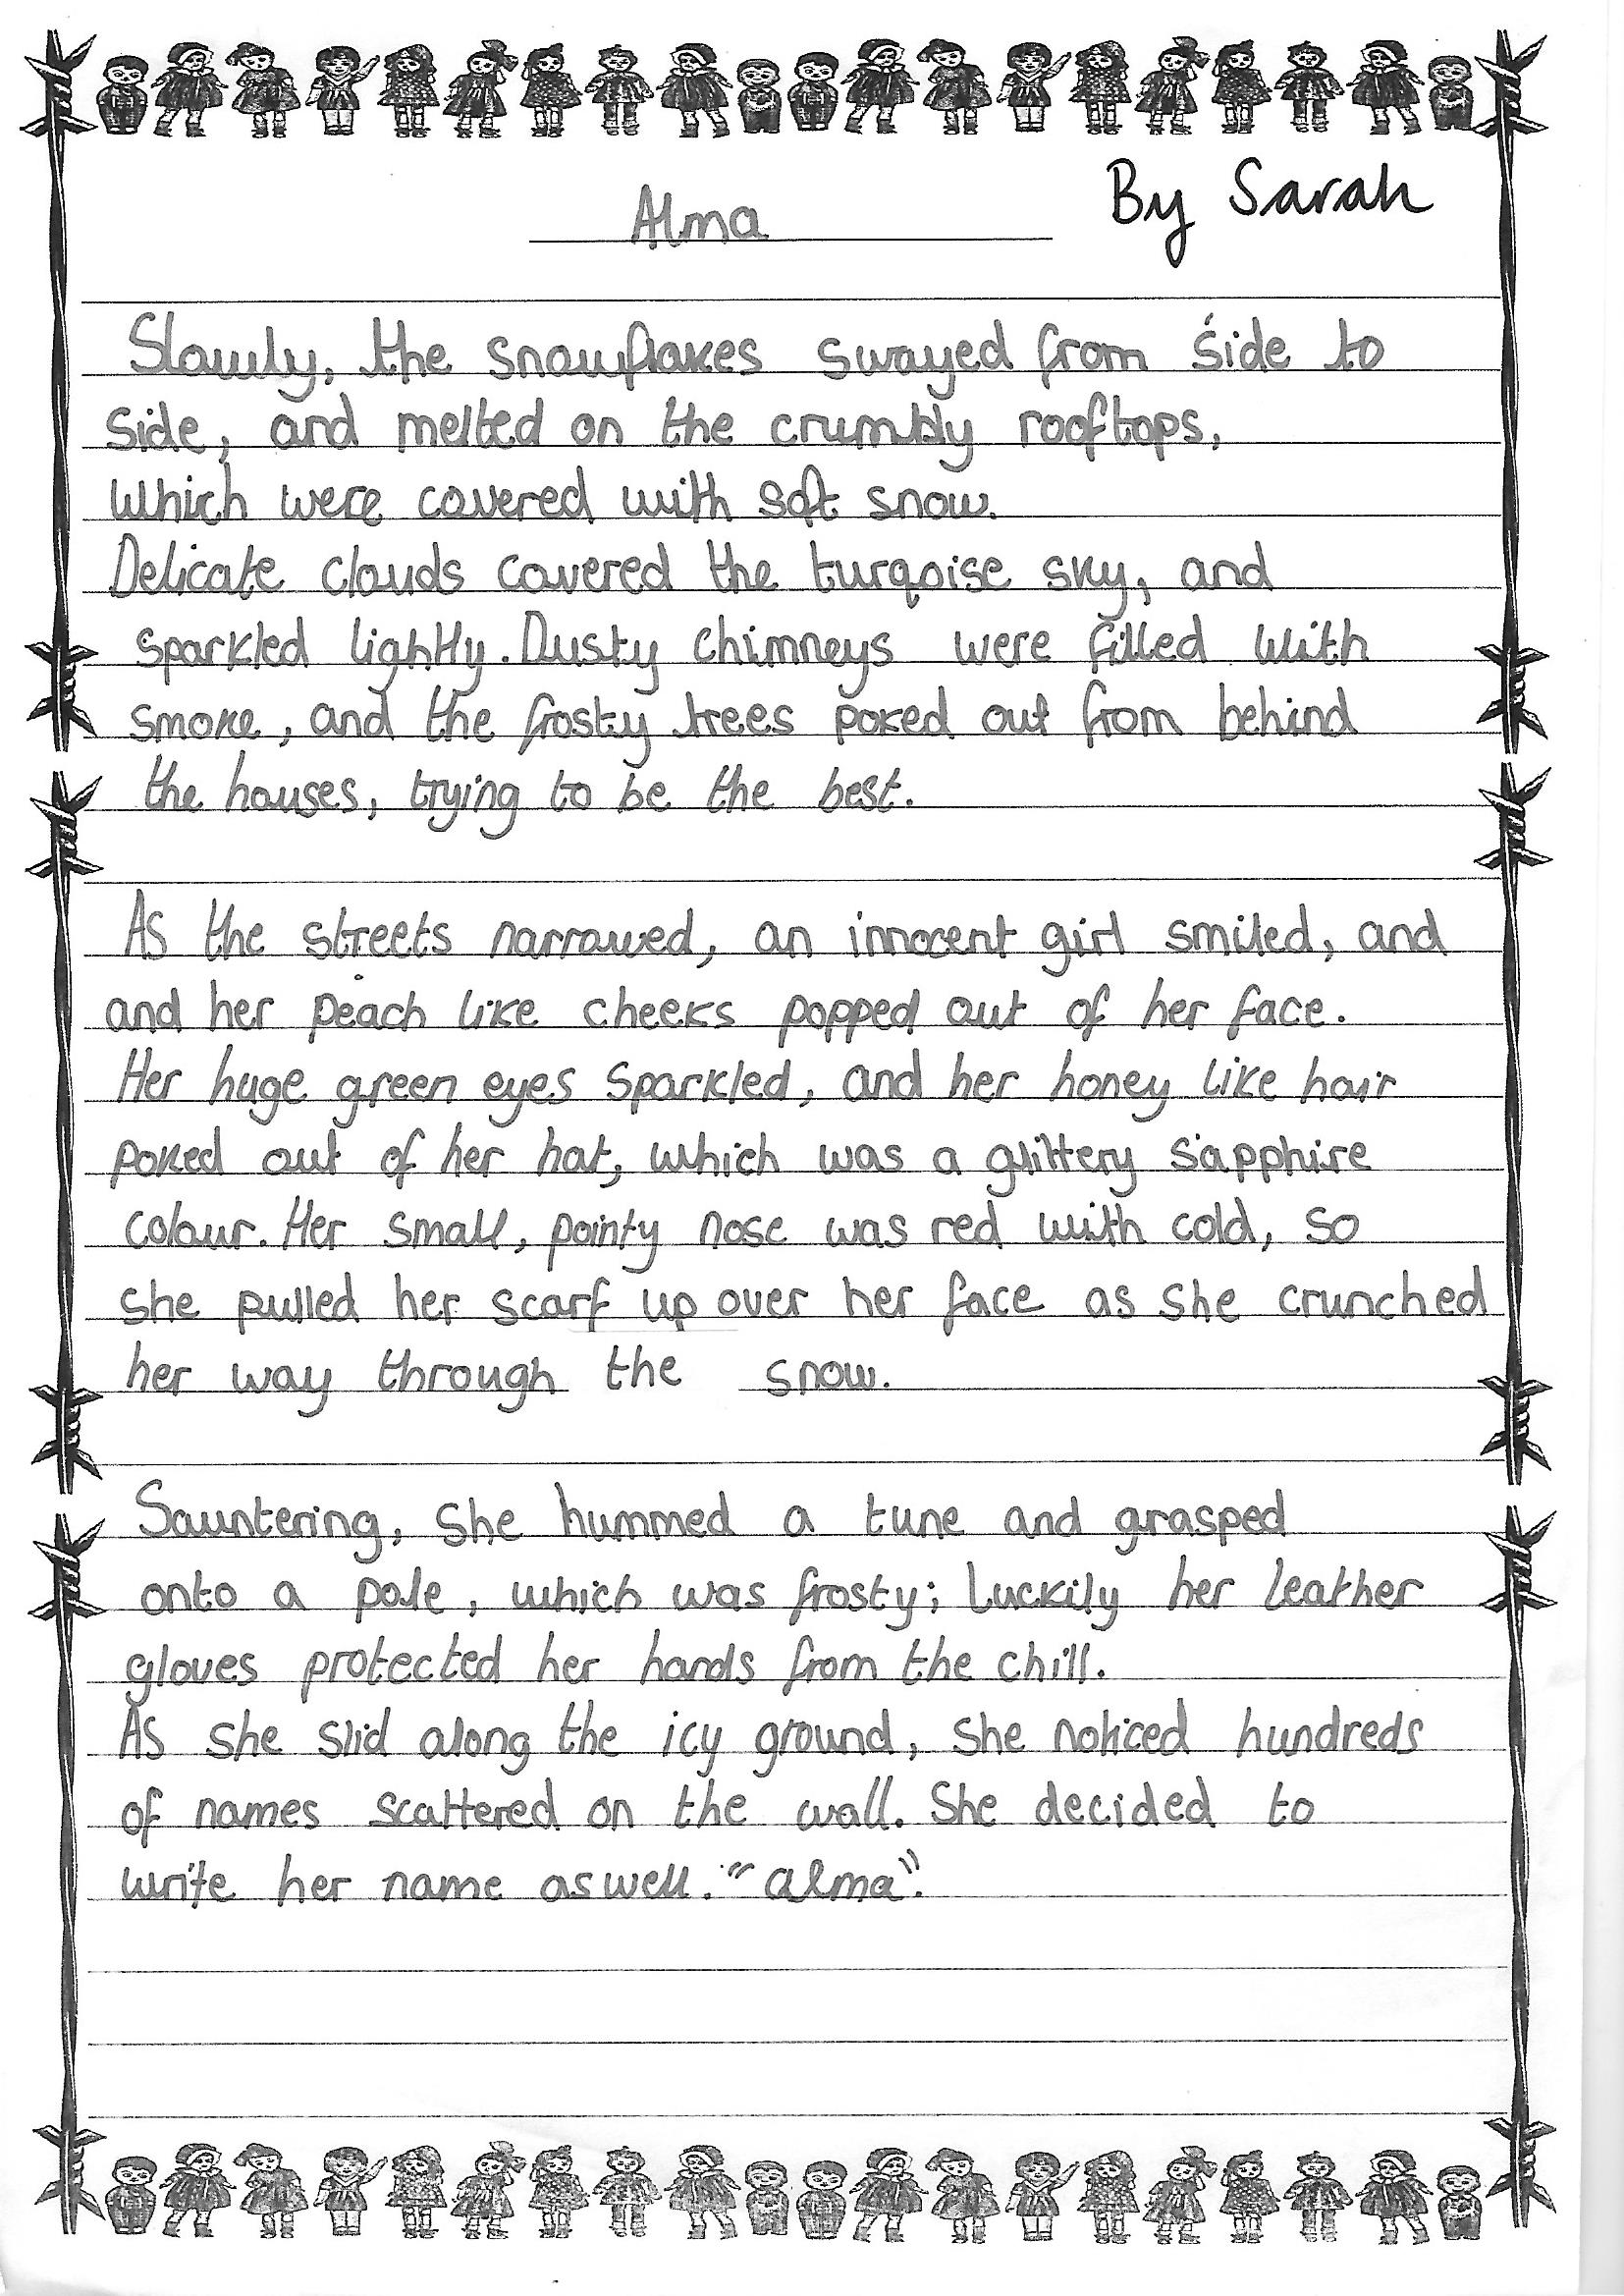 Alma
By Sarah
Slowly, the snowflakes swayed from side to
side, and melted on the crumbly rooftops,
which were covered with soft snow.
Delicate clouds covered the turqoise sky, and
sparkled lightly. Dusty chimneys were filled with
smoke, and the frosty trees poked out from behind
the houses, trying to be the best.
As the streets narrowed, an innocent girl smiled, and
and her peach like cheeks popped out of her face.
Her huge green eyes sparkled, and her honey like hair
poked out of her hat, which was a glittery sapphire
colour. Her small, pointy nose was red with cold, so
she pulled her scarf up over her face as she crunched
her way through the snow.
Sauntering, she hummed a tune and grasped
onto a pole, which was frosty; luckily her leather
gloves protected her hands from the chill.
As she slid along the icy ground, she noticed hundreds
of names scattered on the wall. She decided to
write her name aswell. "alma".